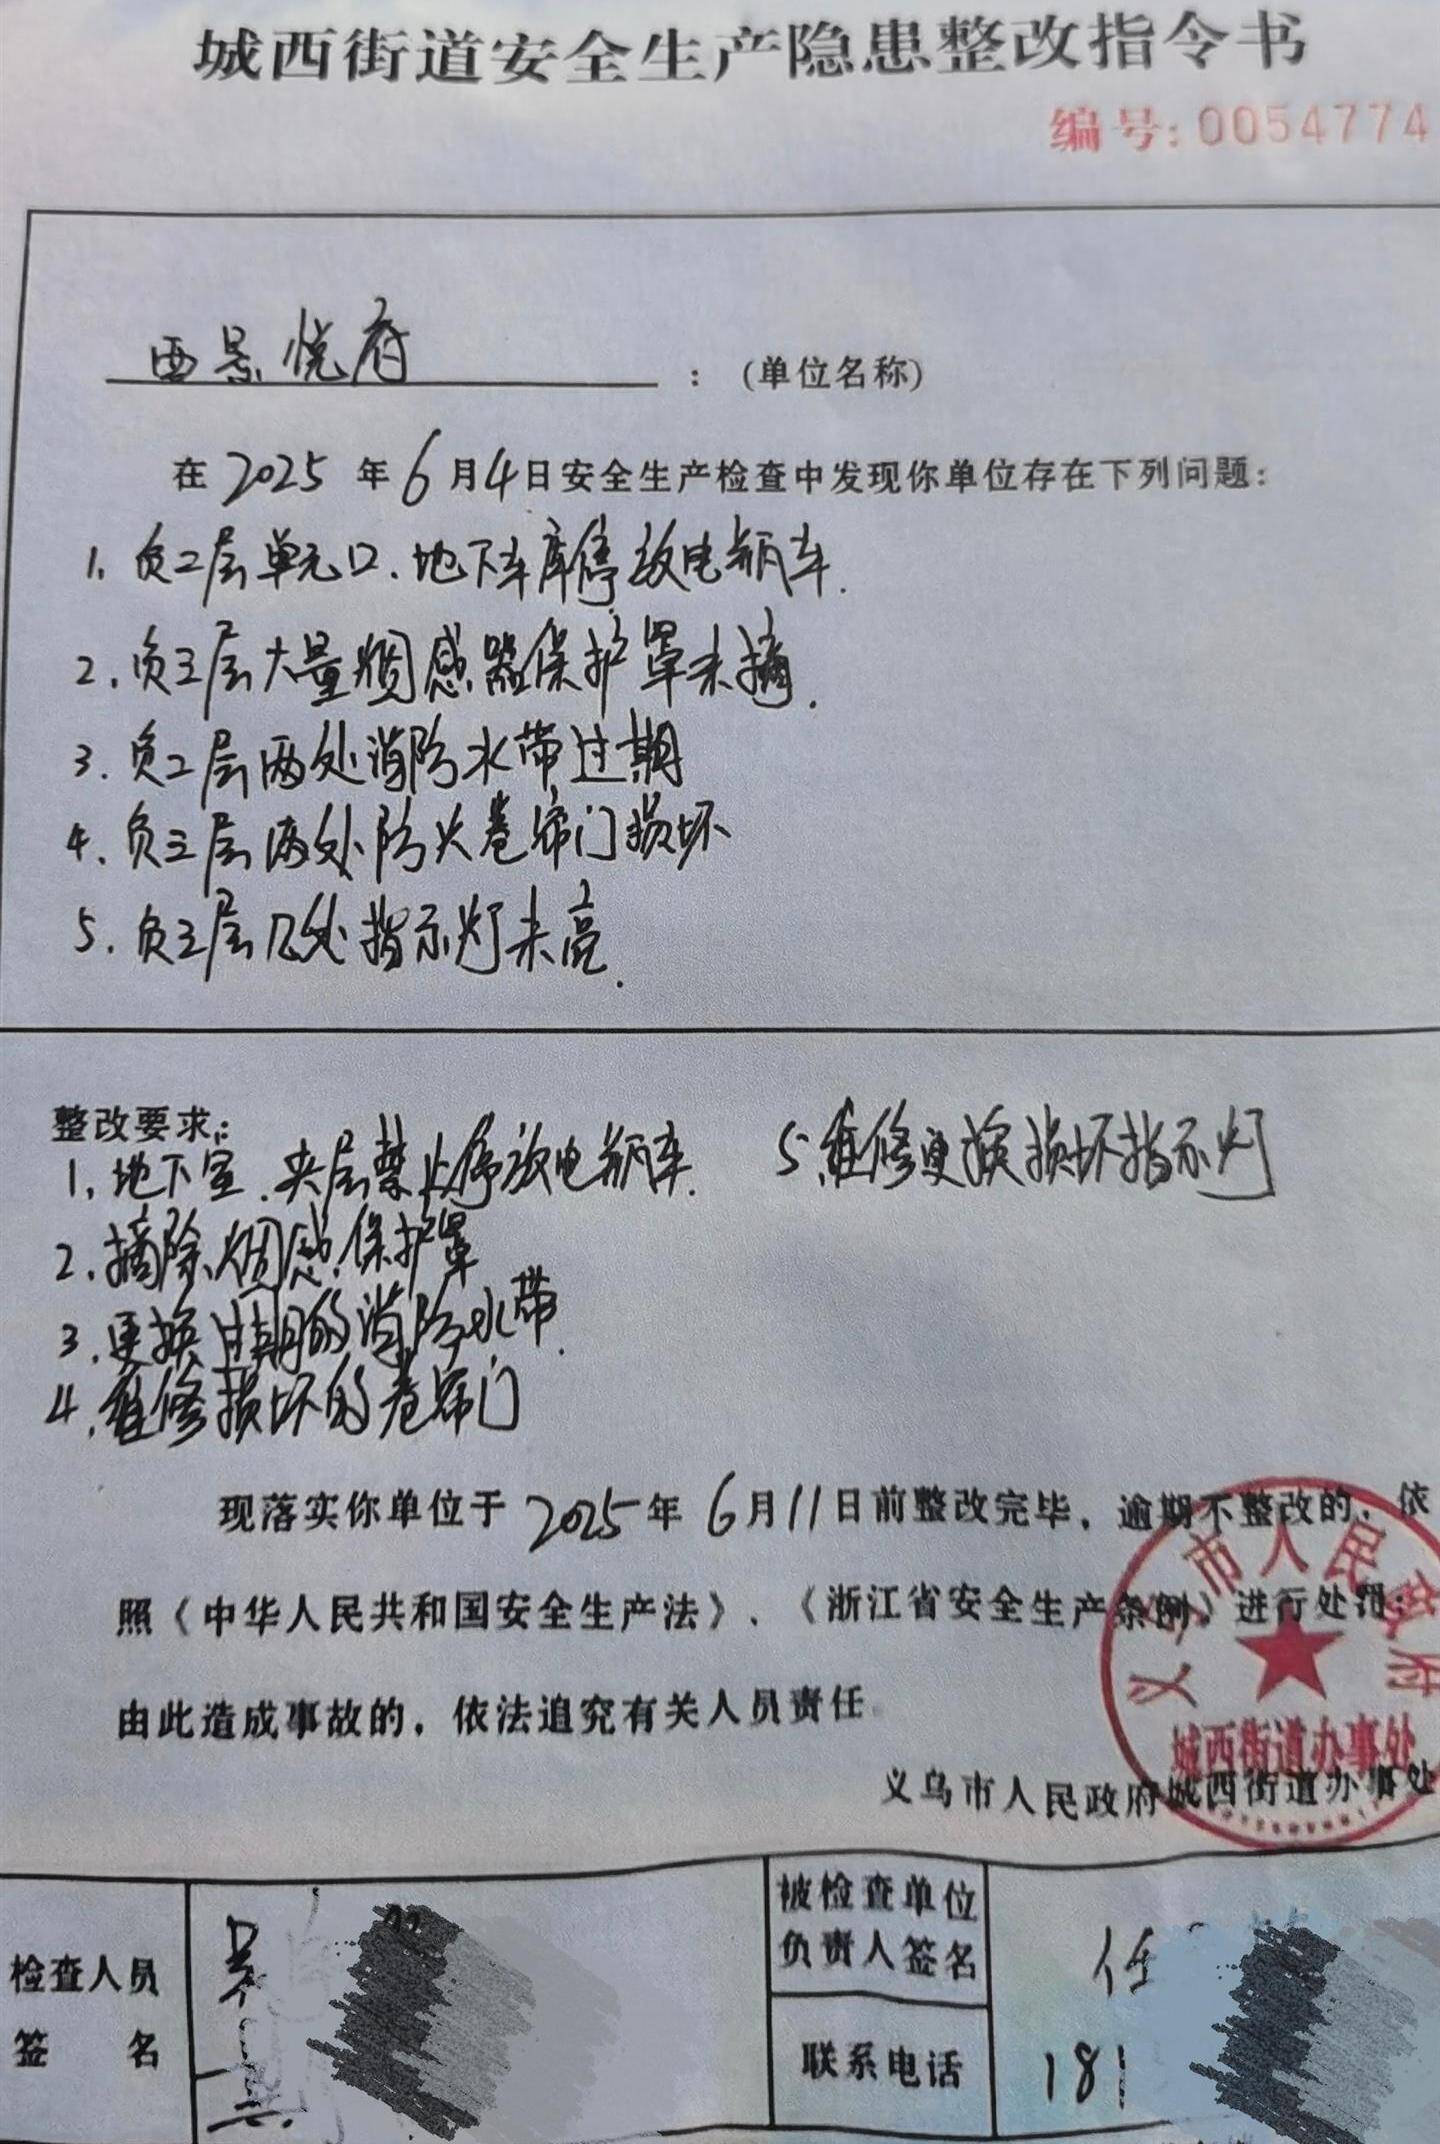 城西街道安全生产隐患整改指令书
编号:0054774
西景悦府 : (单位名称)
在2025年6月4日安全生产检查中发现你单位存在下列问题:
1. 负二层单元口、地下车库停放电瓶车.
2. 负三层大量烟感器保护罩未摘.
3. 负二层两处消防水带过期
4. 负三层两处防火卷帘门损坏
5. 负三层几处指示灯未亮.
整改要求:
1. 地下室、夹层禁止停放电瓶车. 5.维修更换损坏指示灯
2. 摘除烟感保护罩
3. 更换过期的消防水带.
4. 维修损坏的卷帘门
现落实你单位于2025年6月11日前整改完毕,逾期不整改的,依
照《中华人民共和国安全生产法》、《浙江省安全生产条例》进行处罚;
由此造成事故的,依法追究有关人员责任
义乌市人民政府
城西街道办事处
义乌市人民政府城西街道办事处
检查人员
签 名
被检查单位
负责人签名
任
联系电话
181